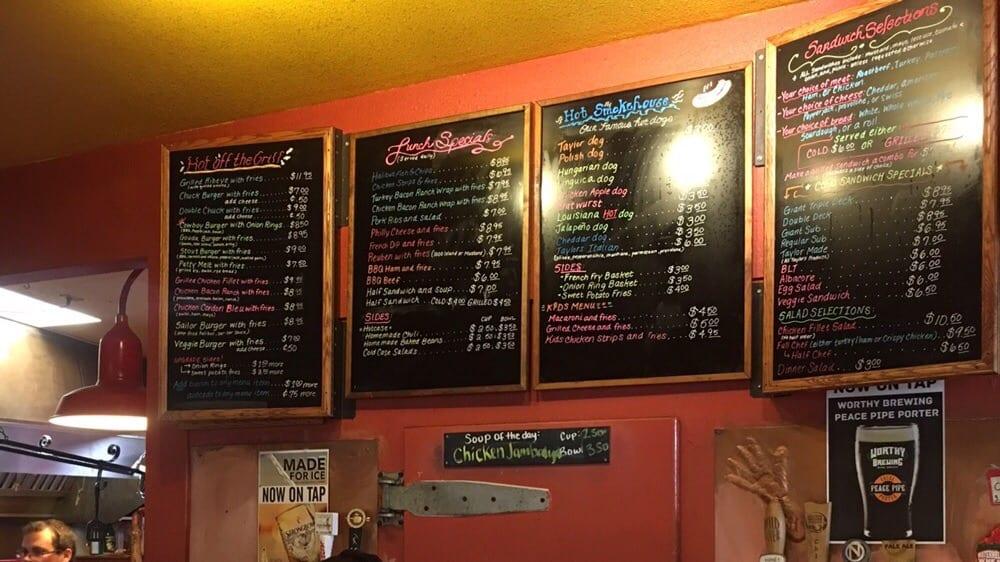 Hot off the Grill
Grilled Ribeye with fries $11.95
Chuck Burger with fries $7.00
add cheese .50
Double Chuck with fries $9.00
add cheese .50
Cowboy Burger with Onion Rings $8.50
Gouda Burger with fries $8.95
Stout Burger with fries $9.00
Patty Melt with fries $7.50
Grilled Chicken Fillet with fries
Chicken Bacon Ranch with fries
Chicken Cordon Bleu with fries $8.95
Sailor Burger with fries $8.95
Veggie Burger with fries $7.00
add cheese .50
UPGRADE SIDES!
Onion Rings more
Sweet potato fries more
Add bacon to any menu item $1.00 more
avocado to any menu item ¢.75 more
Lunch Specials
(Served daily)
Halibut Fish & Chips
Chicken Strips & fries
Turkey Bacon Ranch Wrap with fries
Chicken Bacon Ranch Wrap with fries
Pork Ribs and salad $7.00
Philly Cheese and fries $8.95
French Dip and fries $7.95
Reuben with fries
BBQ Ham and fries $7.95
BBQ Beef $6.00
Half Sandwich and Soup $7.00
Half Sandwich COLD $4.00 GRILLED $4.50
SIDES: CUP BOWL
Hotcase
Homemade Chili $2.50 $3.50
Homemade Baked Beans
Cold Case Salads $2.50 $3.50
Hot Smokehouse
Our famous hot dogs
Taylor dog
Polish dog
Hungarian dog
Linguica dog
Chicken Apple dog
Bratwurst $3.50
Louisiana HOT dog $3.50
Jalapeño dog $3.00
Cheddar dog $3.50
Taylors Italian $6.00
SIDES:
French Fry Basket $3.00
Onion Ring Basket $3.50
Sweet Potato Fries $4.00
KIDS MENU
Macaroni and fries $4.50
Grilled Cheese and fries $5.00
Kids chicken strips and fries $4.95
Sandwich Selections
ALL Sandwiches include: Mustard, mayo, lettuce, tomato
onion, and pickle unless requested otherwise
Your choice of meat: Roastbeef, Turkey, Pastrami
Ham, or Chicken
Your choice of cheese: Cheddar, american
Pepperjack, provolone, or Swiss
Your choice of bread: White, Whole Wheat
Sourdough, or a roll
Served either
COLD $6.00 OR GRILLED
Make any cold sandwich a combo for
COLD SANDWICH SPECIALS
Giant Triple Deck $8.95
Double Deck $7.95
Giant Sub $8.95
Regular Sub $6.95
Taylor Made $7.00
BLT $6.00
Albacore $6.00
Egg Salad $6.00
Veggie Sandwich $6.50
SALAD SELECTIONS:
Chicken Fillet Salad $10.50
Full Chef (either turkey/ham or Crispy Chicken) $9.50
Half Chef $6.50
Dinner Salad $3.00
Soup of the day: Cup: 2.50
Chicken Jambalaya Bowl 3.50
MADE
FOR ICE
NOW ON TAP
NOW ON TAP
WORTHY BREWING
PEACE PIPE PORTER
WORTHY
BREWING
PEACE PIPE
PORTER
PALE ALE